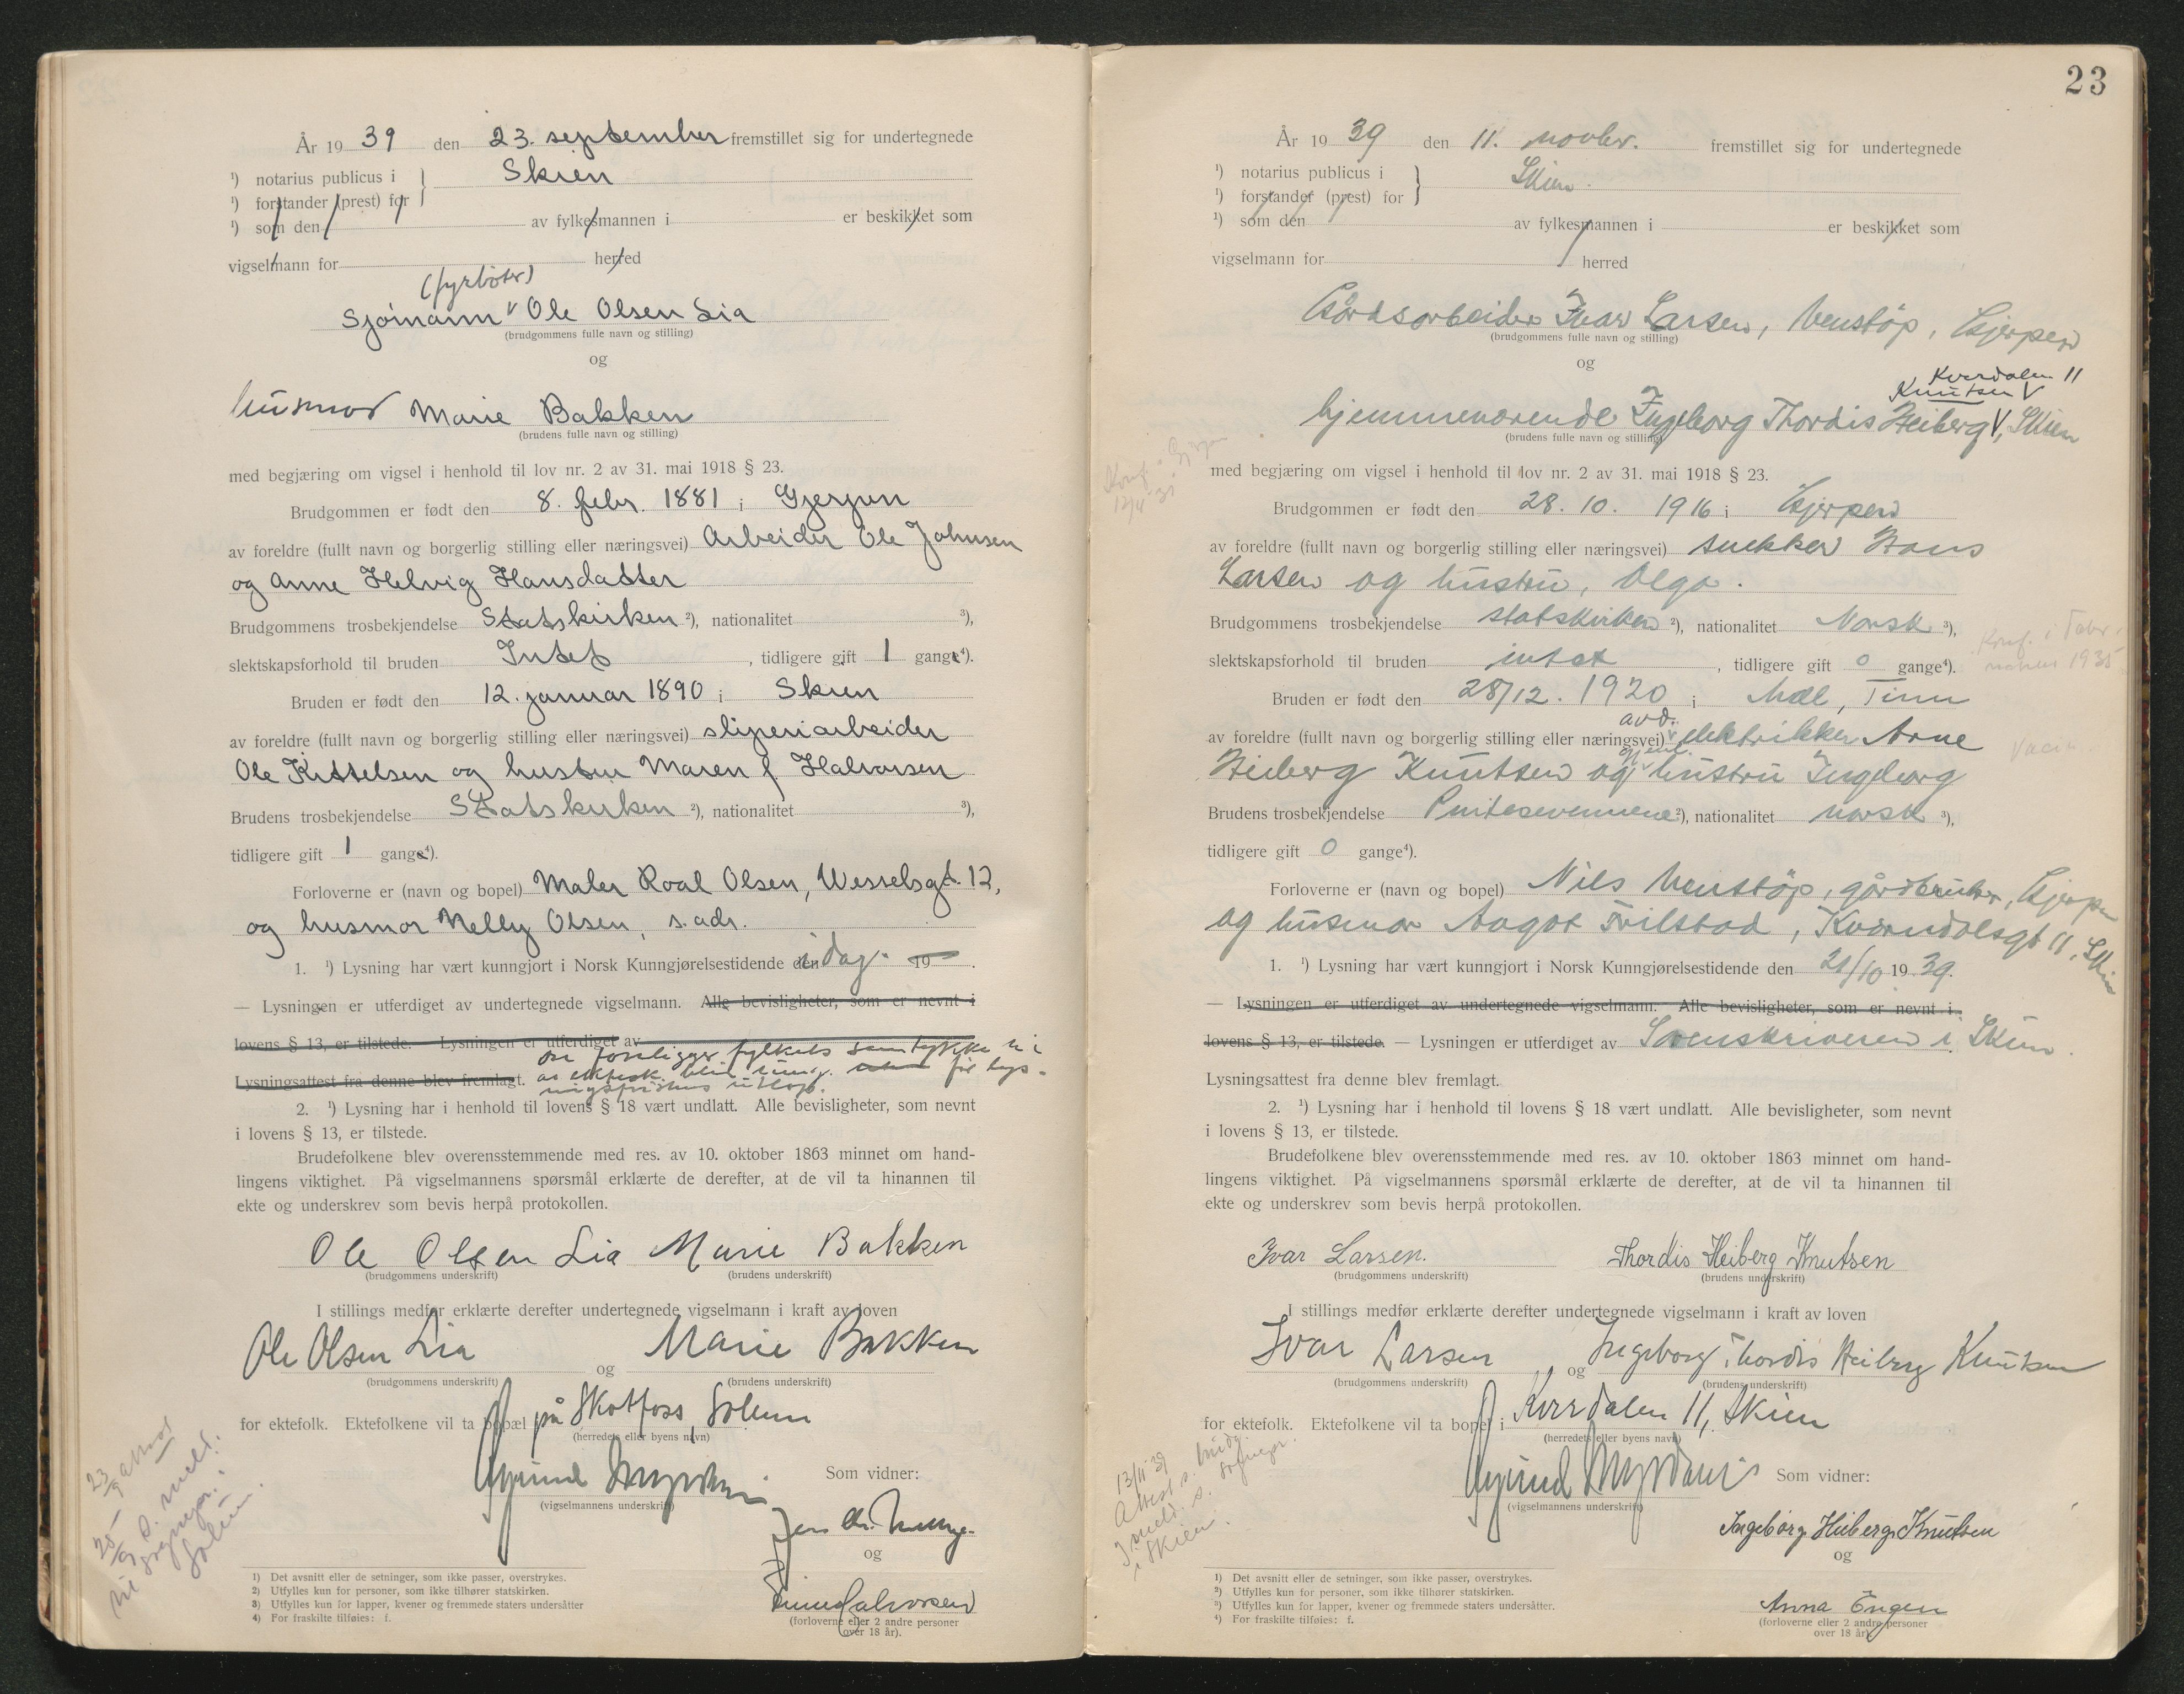 År 19 39 den 23. september fremstillet sig for undertegnede
¹) notarius publicus i } Skien
¹) forstander (prest) for
¹) som den av fylkesmannen i er beskikket som
vigselmann for herred
(fyrbøter)
Sjømann v Ole Olsen Lia
(brudgommens fulle navn og stilling)
og
husmor Marie Bakken
(brudens fulle navn og stilling)
med begjæring om vigsel i henhold til lov nr. 2 av 31. mai 1918 § 23.
Brudgommen er født den 8. febr. 1881 i Gjerpen
av foreldre (fullt navn og borgerlig stilling eller næringsvei) Arbeider Ole Johnsen
og Anne Helvig Hansdatter
Brudgommens trosbekjendelse Statskirken ²), nationalitet ³),
slektskapsforhold til bruden Intet , tidligere gift 1 gange⁴).
Bruden er født den 12. januar 1890 i Skien
av foreldre (fullt navn og borgerlig stilling eller næringsvei) sliperiarbeider
Ole Kittelsen og hustru Maren f. Halvorsen
Brudens trosbekjendelse Statskirken ²), nationalitet ³),
tidligere gift 1 gange⁴).
Forloverne er (navn og bopel) Maler Roal Olsen, Wesselsgt. 12,
og husmor Nelly Olsen, s. adr.
1. ¹) Lysning har vært kunngjort i Norsk Kunngjørelsestidende den idag. 19 .
— Lysningen er utferdiget av undertegnede vigselmann. Alle bevisligheter, som er nevnt i
lovens § 13, er tilstede. — Lysningen er utferdiget av
Der foreligger fylkets samtykke til
Lysningsattest fra denne blev fremlagt. at ektesk. blir inng. før lys-
ningsfristens utløp.
2. ¹) Lysning har i henhold til lovens § 18 vært undlatt. Alle bevisligheter, som nevnt
i lovens § 13, er tilstede.
Brudefolkene blev overensstemmende med res. av 10. oktober 1863 minnet om hand-
lingens viktighet. På vigselmannens spørsmål erklærte de derefter, at de vil ta hinannen til
ekte og underskrev som bevis herpå protokollen.
Ole Olsen Lia Marie Bakken
(brudgommens underskrift) (brudens underskrift)
I stillings medfør erklærte derefter undertegnede vigselmann i kraft av loven
Ole Olsen Lia og Marie Bakken
(brudgommens underskrift) (brudens underskrift)
for ektefolk. Ektefolkene vil ta bopæl på Skotfoss, Solum
(herredets eller byens navn)
Som vidner:
(vigselmannens underskrift)
Jens
og
Halvorsen
(forloverne eller 2 andre personer
over 18 år).
23/9 attest
25/9 s. meld.
til sognepr. i
Solum.
1) Det avsnitt eller de setninger, som ikke passer, overstrykes.
2) Utfylles kun for personer, som ikke tilhører statskirken.
3) Utfylles kun for lapper, kvener og fremmede staters undersåtter
4) For fraskilte tilføies: f.
23
År 19 39 den 11. novbr. fremstillet sig for undertegnede
¹) notarius publicus i } Skien.
¹) forstander (prest) for
¹) som den av fylkesmannen i er beskikket som
vigselmann for herred
Gårdsarbeider Ivar Larsen, Venstøp, Gjerpen
(brudgommens fulle navn og stilling)
og
Kverdalen 11
Knutsen V
hjemmeværende Ingeborg Thordis Heiberg V, Skien
(brudens fulle navn og stilling)
med begjæring om vigsel i henhold til lov nr. 2 av 31. mai 1918 § 23.
Konf. i Gjerpen
12/4 31
Brudgommen er født den 28. 10. 1916 i Gjerpen
av foreldre (fullt navn og borgerlig stilling eller næringsvei) snekker Hans
Larsen og hustru, Olga.
Brudgommens trosbekjendelse statskirken ²), nationalitet Norsk ³),
slektskapsforhold til bruden intet , tidligere gift 0 gange⁴).
Konf. i
1935
Bruden er født den 28/12. 1920 i Mæl, Tinn
avd.
av foreldre (fullt navn og borgerlig stilling eller næringsvei) v elektrikker Arne
Heiberg Knutsen og hustru Ingeborg
Brudens trosbekjendelse Pinsevennene ²), nationalitet norsk ³),
tidligere gift 0 gange⁴).
Forloverne er (navn og bopel) Nils Venstøp, gårdbruker, Gjerpen
og husmor Aagot Trilstad, Kverndalsgt 11, Skien
1. ¹) Lysning har vært kunngjort i Norsk Kunngjørelsestidende den 21/10 19 39.
— Lysningen er utferdiget av undertegnede vigselmann. Alle bevisligheter, som er nevnt i
lovens § 13, er tilstede. — Lysningen er utferdiget av Sorenskriveren i Skien.
Lysningsattest fra denne blev fremlagt.
2. ¹) Lysning har i henhold til lovens § 18 vært undlatt. Alle bevisligheter, som nevnt
i lovens § 13, er tilstede.
Brudefolkene blev overensstemmende med res. av 10. oktober 1863 minnet om hand-
lingens viktighet. På vigselmannens spørsmål erklærte de derefter, at de vil ta hinannen til
ekte og underskrev som bevis herpå protokollen.
Ivar Larsen. Thordis Heiberg Knutsen
(brudgommens underskrift) (brudens underskrift)
I stillings medfør erklærte derefter undertegnede vigselmann i kraft av loven
Ivar Larsen og Ingeborg Thordis Heiberg Knutsen
(brudgommens underskrift) (brudens underskrift)
for ektefolk. Ektefolkene vil ta bopel i Kverdalen 11, Skien
(herredets eller byens navn)
Som vidner:
(vigselmannens underskrift)
Ingeborg Heiberg Knutsen
og
Anna Engen
(forloverne eller 2 andre personer
over 18 år).
13/11 39
Attest s.
meld. s. sognepr.
i Skien.
1) Det avsnitt eller de setninger, som ikke passer, overstrykes.
²) Utfylles kun for personer, som ikke tilhører statskirken.
³) Utfylles kun for lapper, kvener og fremmede staters undersåtter.
⁴) For fraskilte tilføies: f.